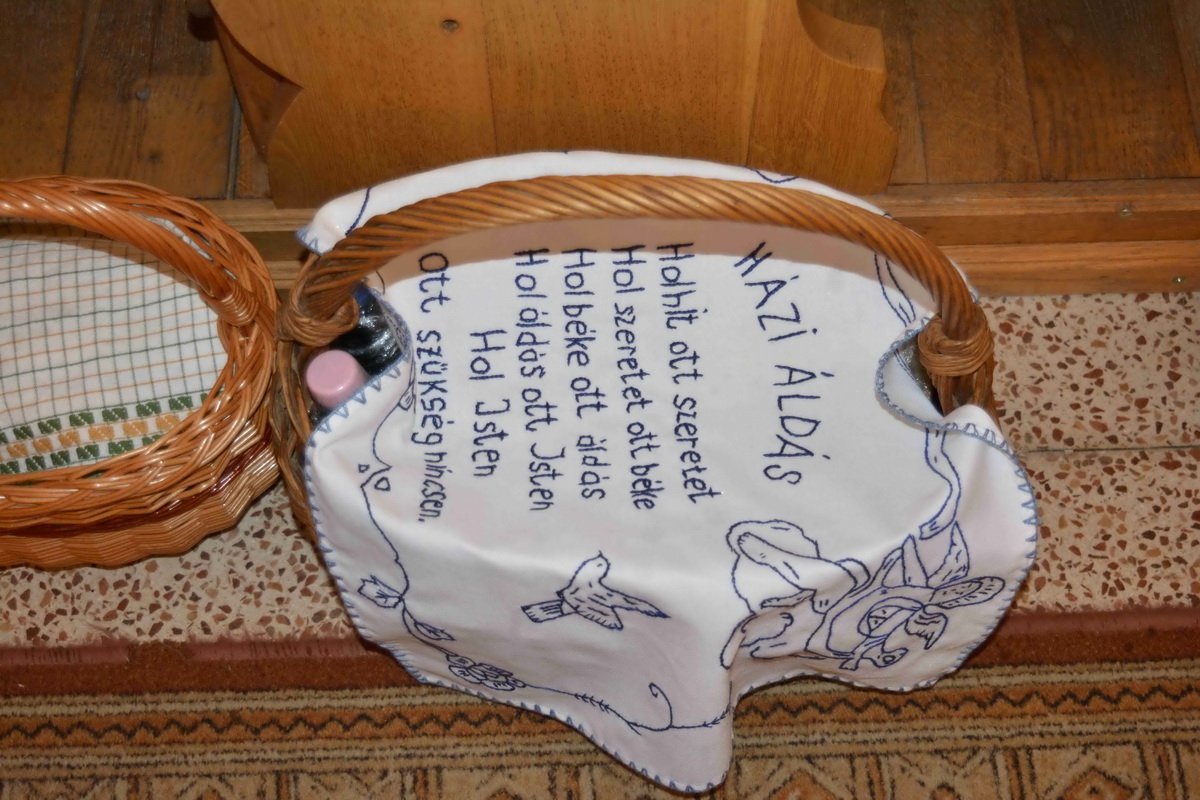 HÁZI ÁLDÁS
Hol hit ott szeretet
Hol szeretet ott béke
Hol béke ott áldás
Hol áldás ott Isten
Hol Isten
Ott szükség nincsen.